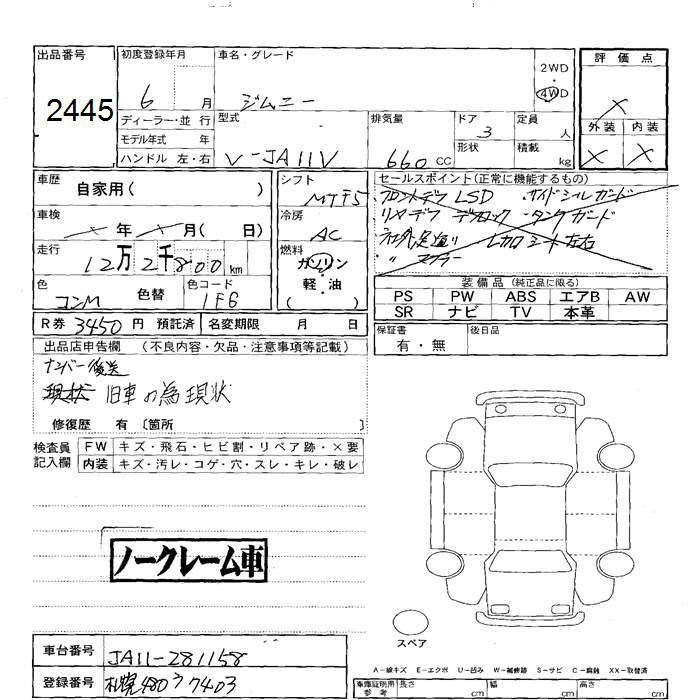 出品番号
2445
初度登録年月
6 月
車名・グレード
ジムニー
2WD
4WD
評価点
X
外装 内装
X X
ディーラー・並 行
モデル年式 年
ハンドル 左・右
型式
V-JA11V
排気量
660 CC
ドア
3
形状
定員
人
積載
kg
車歴
自家用( )
シフト
MT F5
車検
年 月( 日)
冷房
AC
走行
12万2千800km
燃料
ガソリン
軽・油
( )
色
コンM
色替
色コード
1FG
R券 3450円 預託済
名変期限 月 日
セールスポイント(正常に機能するもの)
フロントデフ LSD ・サイドシルガード
リヤデフ デフロック ・タンクガード
社外足廻り レカロシート左右
〃 マフラー
装備品(純正品に限る)
PS PW ABS エアB AW
SR ナビ TV 本革
保証書
有・無
後日品
出品店申告欄 (不良内容・欠品・注意事項等記載)
ナンバー後送
現状 旧車の為現状
修復歴 有 〔箇所 〕
検査員
記入欄
FW キズ・飛石・ヒビ割・リペア跡・×要
内装 キズ・汚レ・コゲ・穴・スレ・キレ・破レ
ノークレーム車
スペア
車台番号
JA11-281158
登録番号
札幌480ウ7403
A-線キズ E-エクボ U-凹み W-補修跡 S-サビ C-腐蝕 XX-取替済
車庫証明用
参考
長さ cm
幅 cm
高さ cm